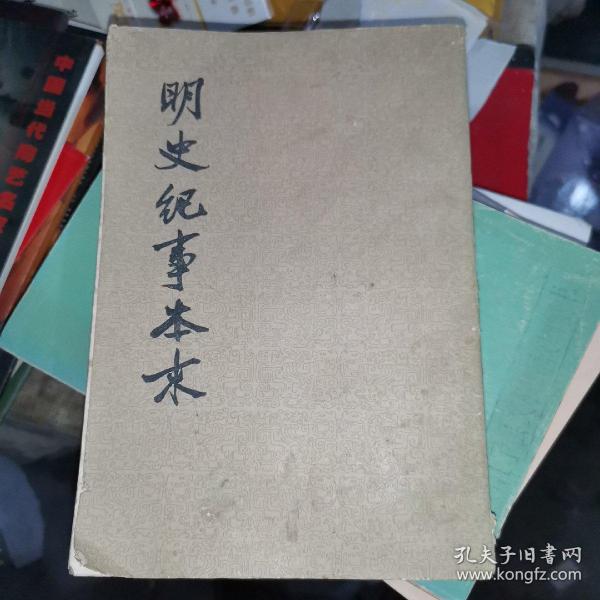 明史纪事本末
中国当代陶艺
孔夫子旧书网
www.kongfz.com